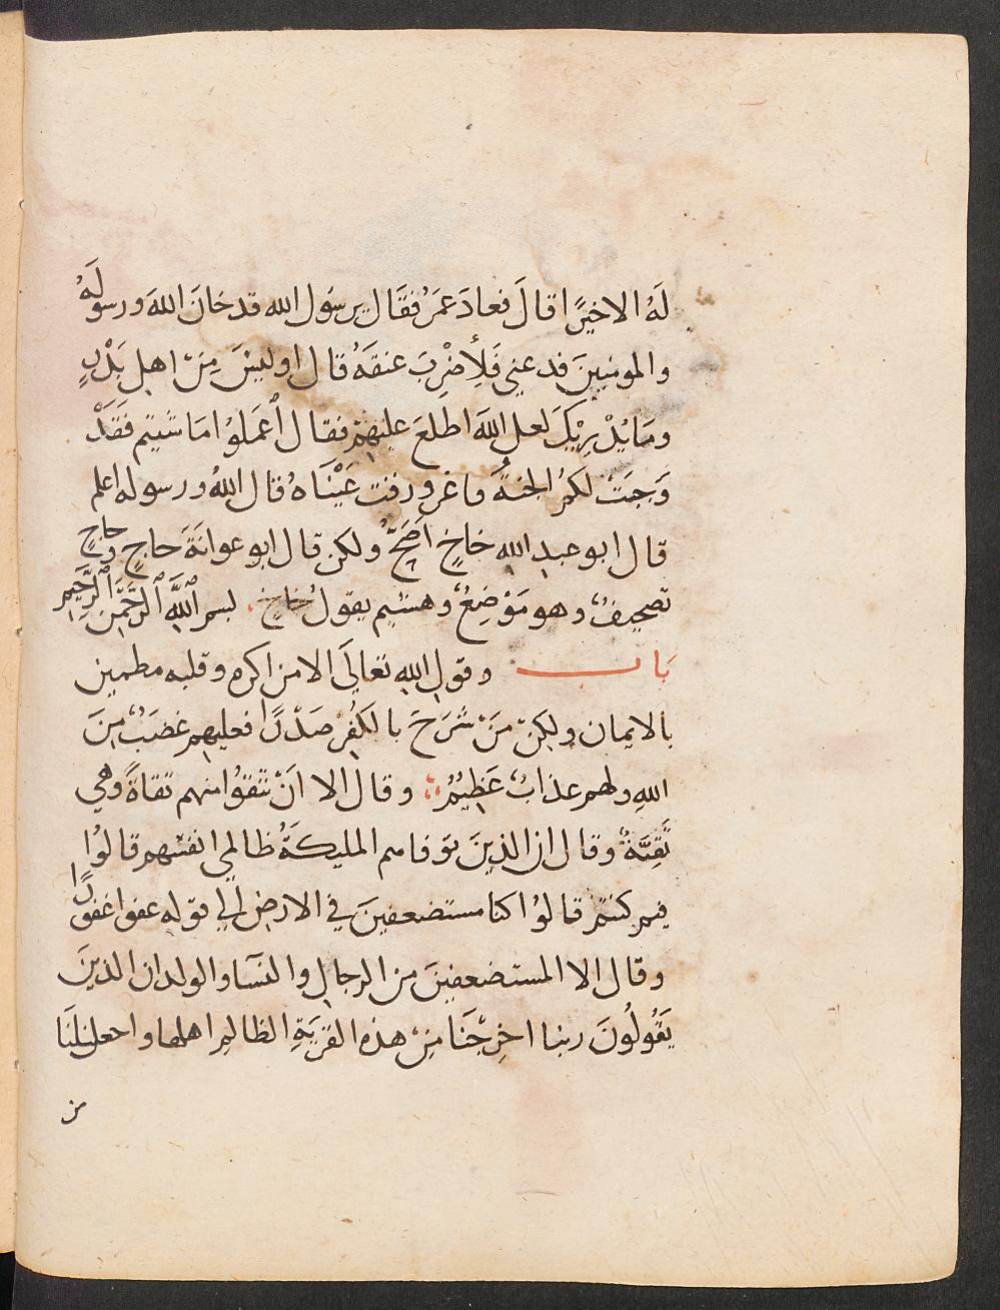 لَهُ الاخيرًا قالَ فعادَ عمَرُ فقَال يرسَول الله قد خانَ اللهَ ورسولَهُ
والمومنينَ فدعني فَلِأضْرِبَ عنقهُ قال اوليْسَ مِنْ اهل بَدْرٍ
ومَا يُدْرِيْكَ لعل اللهَ اطلعَ عليهِمْ فقال اَعمَلوُا مَا شيتم فَقَدْ
وَجبَتْ لكمُ الجنةُ فاغرورقت عَيْنَاهُ قال اللهُ ورسوله اعلم
قال ابو عبد الله خاخٍ اَصَحُّ ولكن قال ابو عوانَةَ حاجٍ وحاجٍ
تصحيفٌ وهو مَوْضِعٌ وهشيم يقولُ خاخٍ بسم اللَّهِ الرَّحْمَنِ الرَّحِيمِ
بَاب وقولِ اللهِ تعَالَى الا من اكره وقلبه مطمين
بالايمان ولكِنْ مَنْ شَرَحَ بالكفُرْ صَدْرًا فعليهم غضبٌ مِنَ
اللهِ ولهم عذابٌ عَظِيْمٌ وقال الا اَنْ تتقوُا منهم تقاةً وهي
تَقِيَّةٌ وقال ان الذينَ توفاهم المليكَةُ ظالمي انفسهم قالوُا
فيم كنتم قالوُا كنا مستضعفينَ في الارضِ الي قوله عفوا غفورًا
وقال الا المستضعفِينَ من الرجالِ والنسَا والولدان الذينَ
يَقُولُونَ ربنا اخرِجْنَا مِنْ هذه القريَةِ الظالم اهلها واجعل لنَا
من